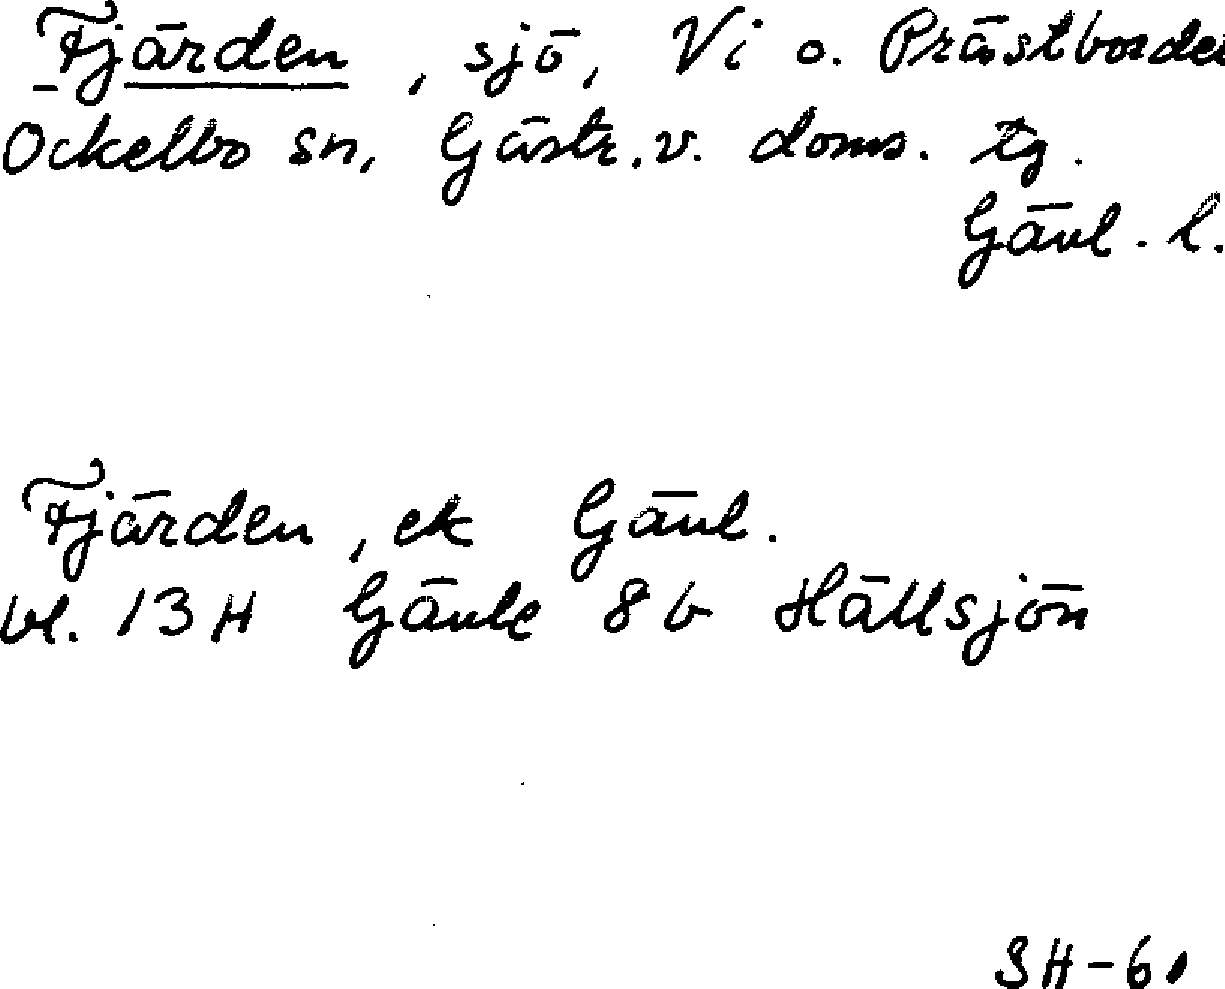 Fjärden, sjö, Vi o. Prästbordet
Ockelbo sn, Gästr. v. doms. tg.
Gävl. l.
Fjärden, ek Gävl.
bl. 13H Gävle 8b Hällsjön
SH-60